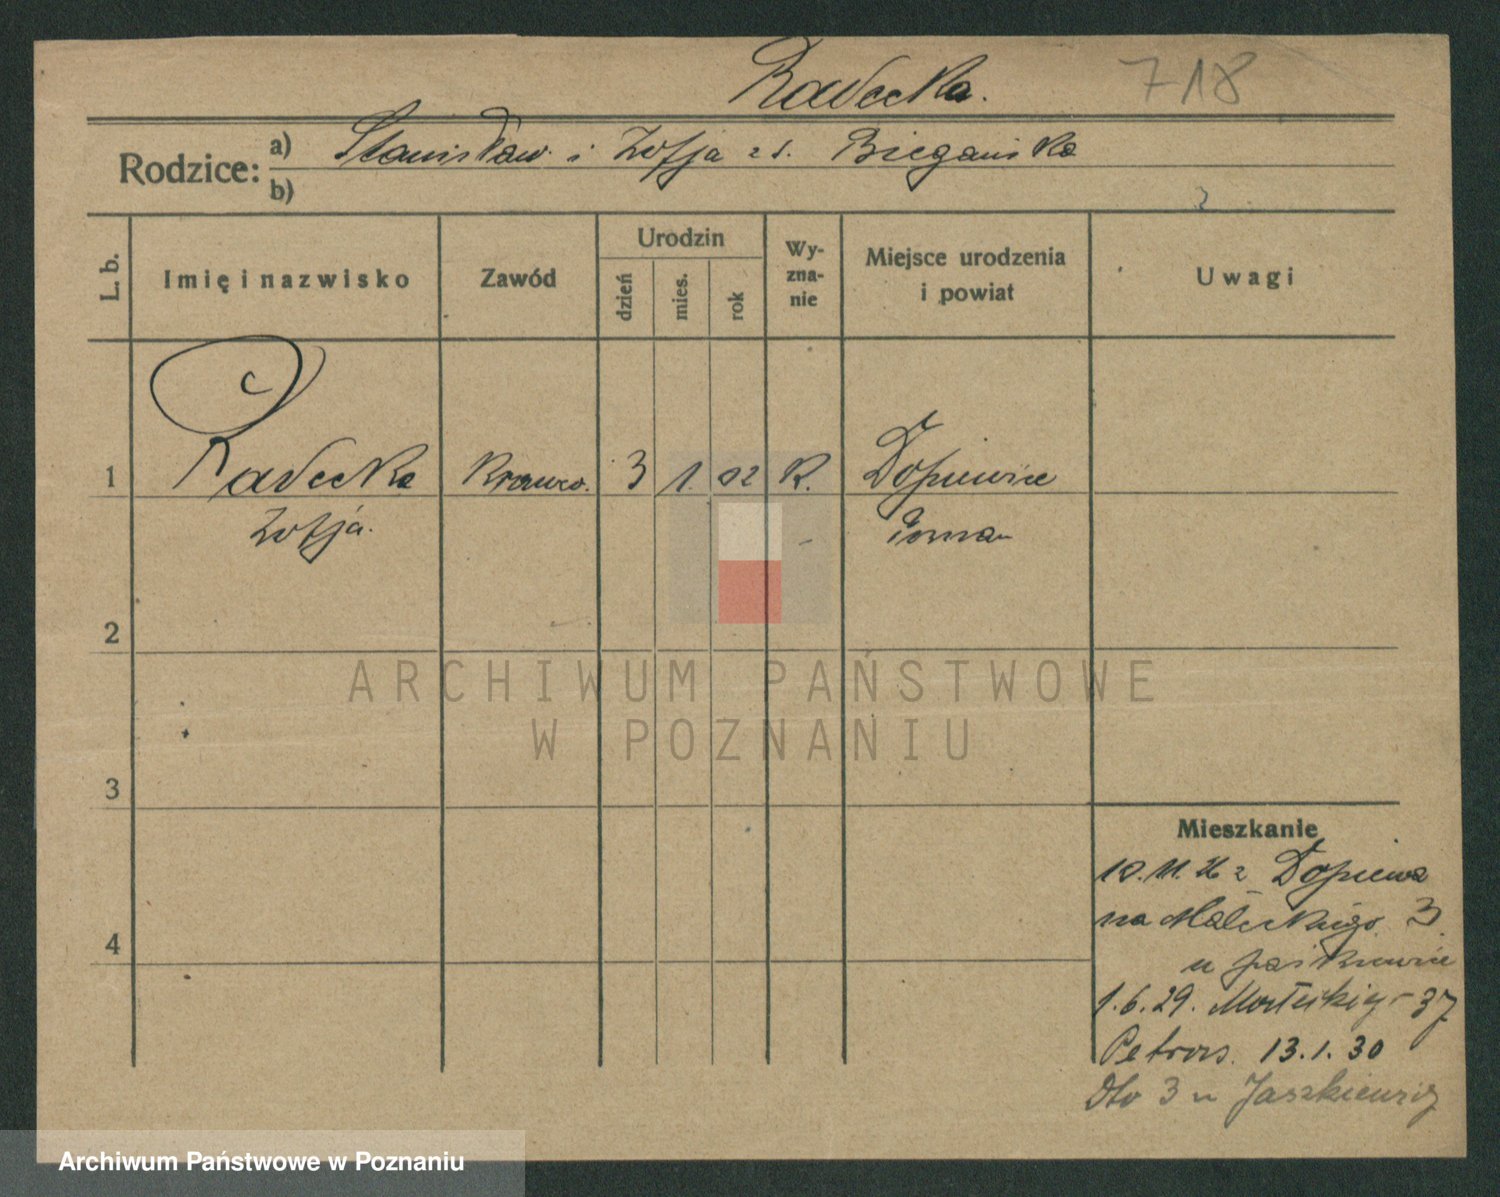 Radecka.
718
Rodzice: a) Stanisław i Zofja z d. Biegańska
b)
L. b.
Imię i nazwisko
Zawód
Urodzin
dzień
mies.
rok
Wy-
zna-
nie
Miejsce urodzenia
i powiat
Uwagi
1 Radecka Krawco. 3 1. 02 R. Dopiewice
Zofja.
2
3
4
Mieszkanie
10.11.26 z Dopiewa
na Małeckiego 3
u Jaśkiewicz
1.6.29. Małeckiego 37
13.1.30
Dto 3 u Jaszkiewicz
ARCHIWUM PAŃSTWOWE
W POZNANIU
Archiwum Państwowe w Poznaniu